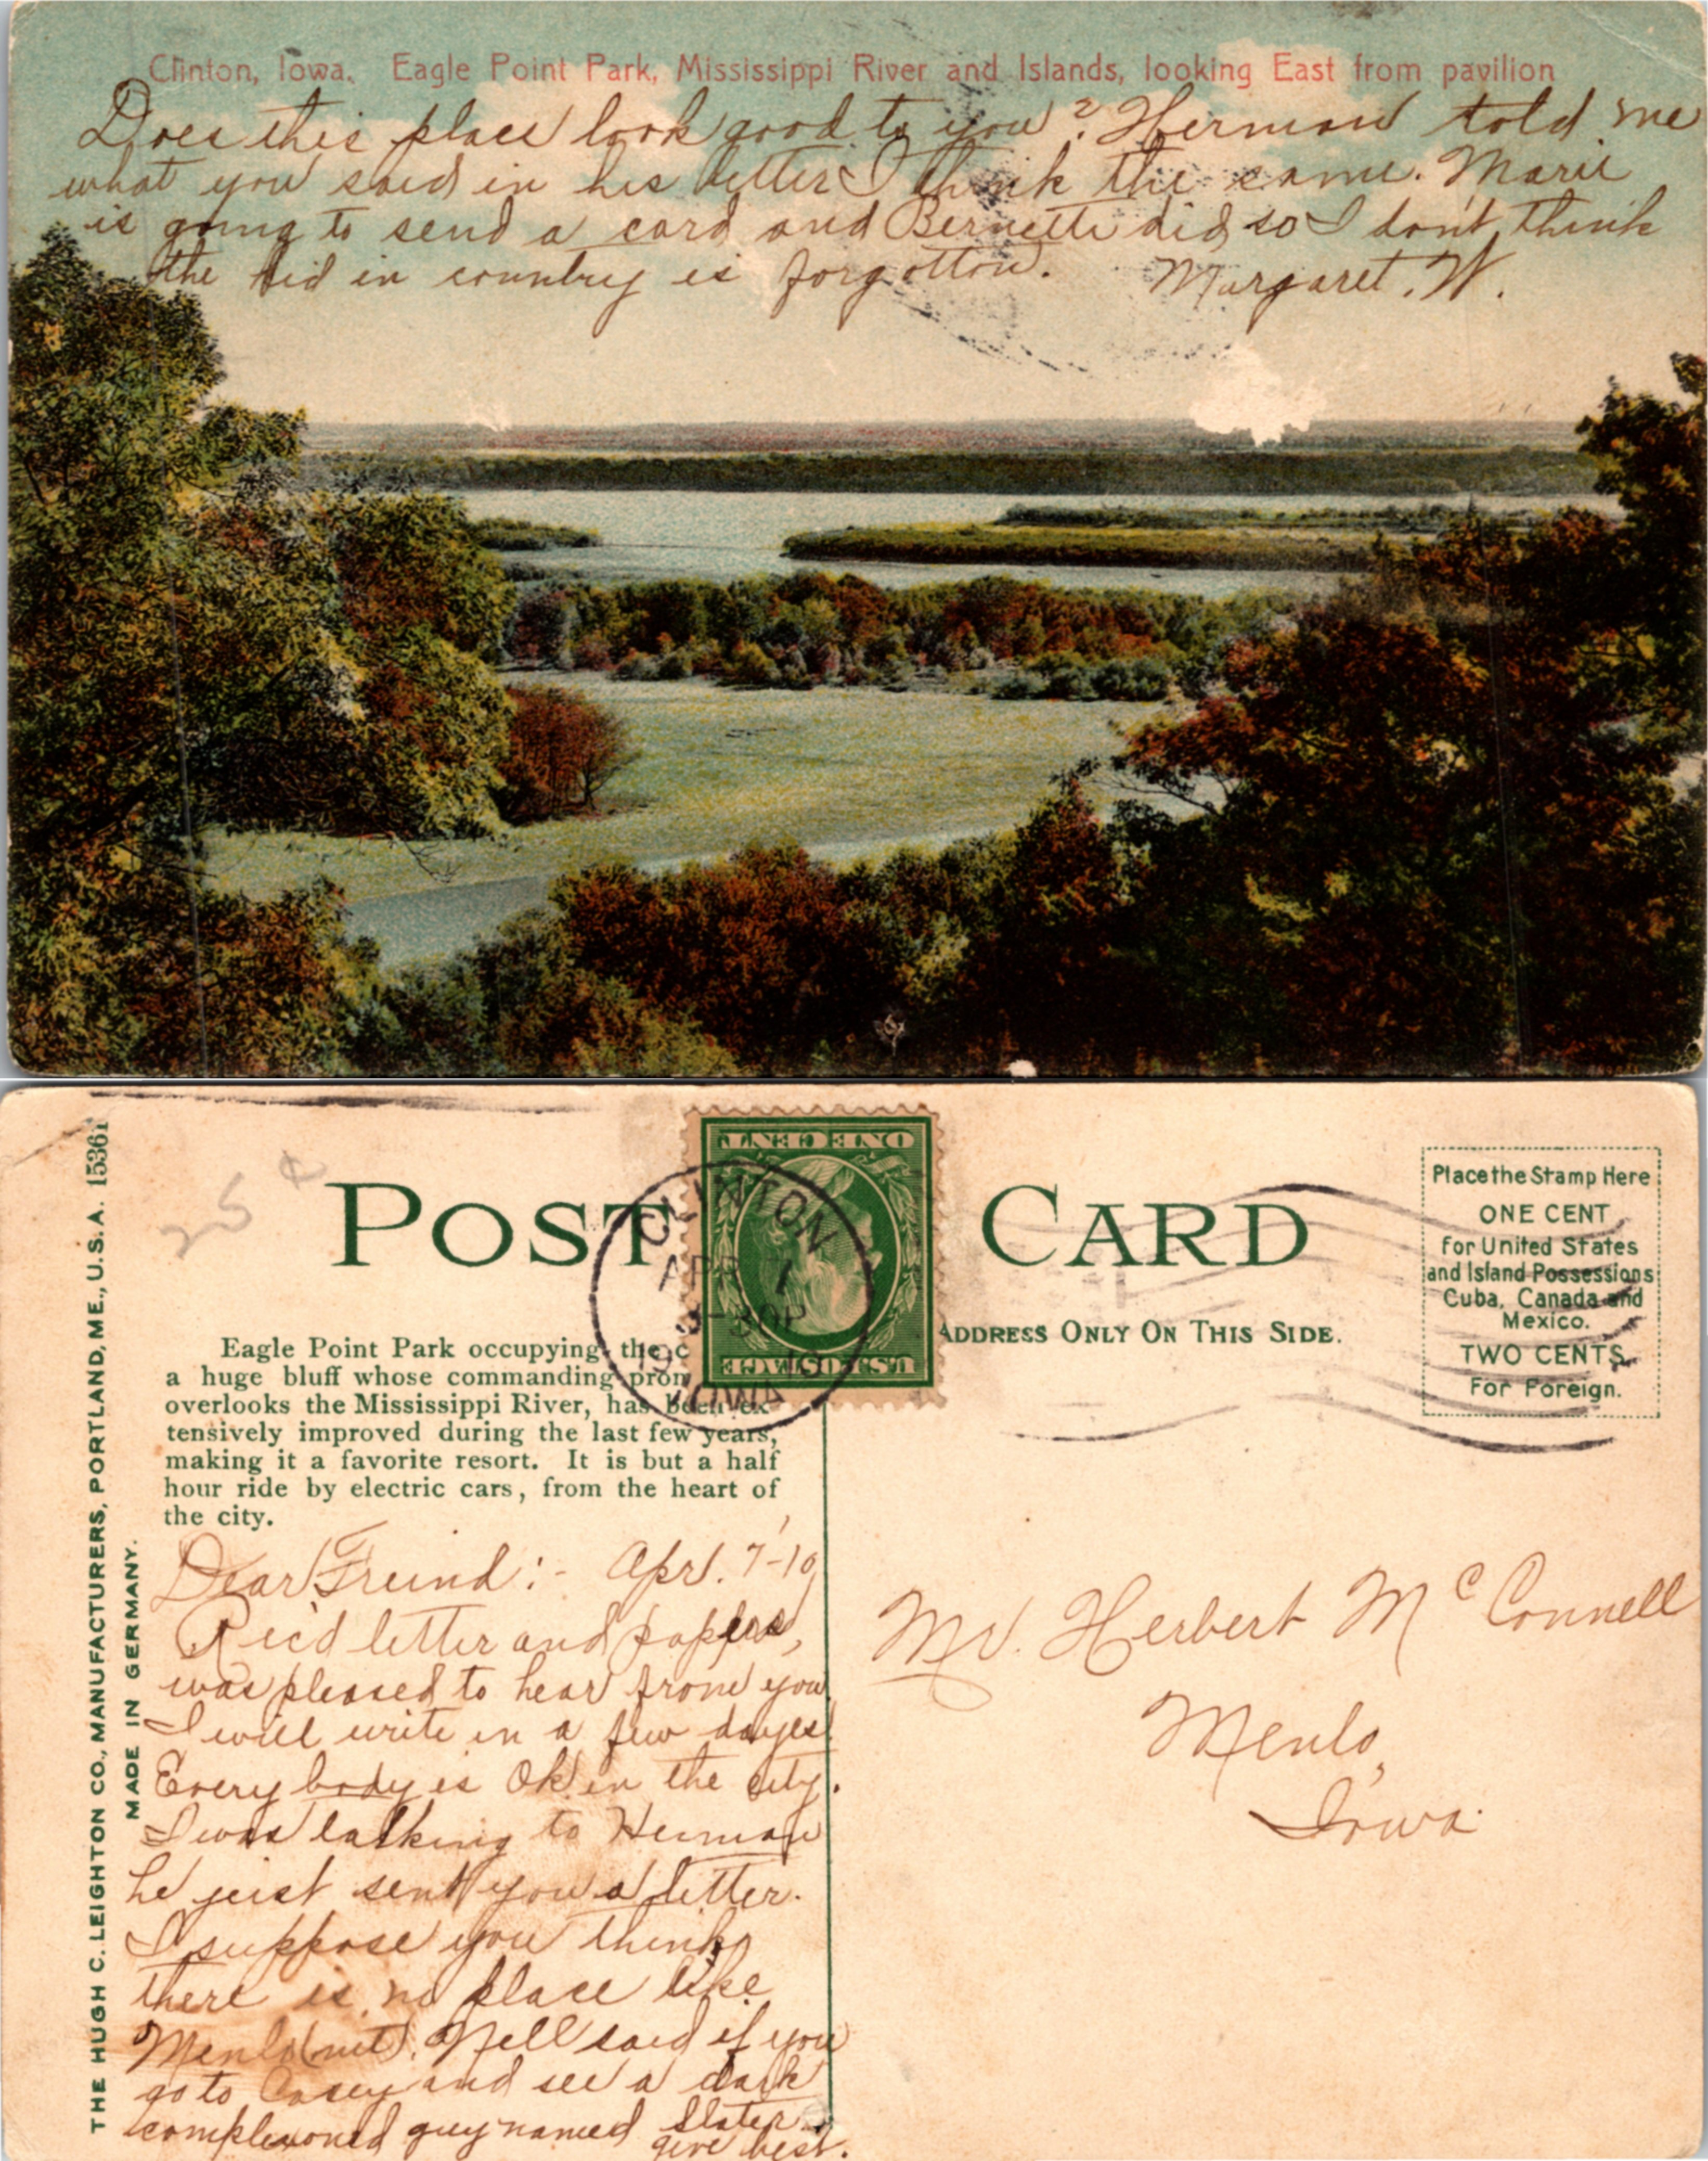 Clinton, Iowa. Eagle Point Park, Mississippi River and Islands, looking East from pavilion
Does this place look good to you? Herman told me
what you said in his letter I think the same. Marie
is going to send a card and Bernette did so I don't think
the kid in country is forgotton.
Margaret. W.
THE HUGH C. LEIGHTON CO., MANUFACTURERS, PORTLAND, ME., U.S.A. 15361
MADE IN GERMANY.
25¢
POST CARD
ONE CENT
U.S. POSTAGE
CLINTON
APR 7
3-30P
1910
IOWA
Place the Stamp Here
ONE CENT
for United States
and Island Possessions
Cuba, Canada and
Mexico.
TWO CENTS
For Foreign.
ADDRESS ONLY ON THIS SIDE.
Eagle Point Park occupying the c
a huge bluff whose commanding prom
overlooks the Mississippi River, has been ex
tensively improved during the last few years,
making it a favorite resort. It is but a half
hour ride by electric cars, from the heart of
the city.
Dear Freind:- Apr. 7-10
Rec'd letter and papers,
was pleased to hear from you
I will write in a few dayes.
Everybody is Ok in the city.
I was talking to Herman
he just sent you a letter.
I suppose you think
there is no place like
Menlo (nit). Nell said if you
go to Casey and see a dark
complexoned guy named Slater
give best.
Mr. Herbert McConnell
Menlo,
Iowa.